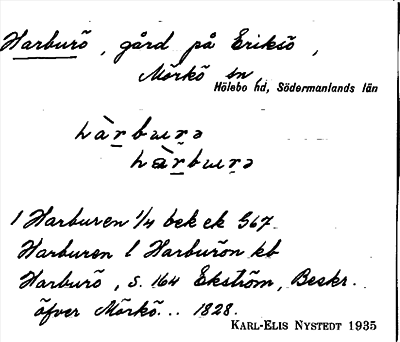 Harburö, gård på Eriksö,
Mörkö sn,
Hölebo hd, Södermanlands län
hàr̲bɯṛə
hàr̲bɯṛə
1 Harburen 1/4 bek ek 567.
Harburen l Harburön kb
Harburö, s. 164 Ekström, Beskr.
öfver Mörkö... 1828.
KARL-ELIS NYSTEDT 1935